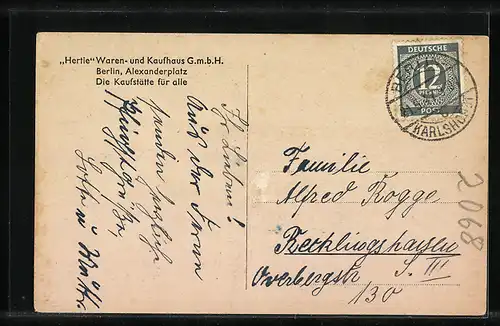 „Hertie“ Waren- und Kaufhaus G.m.b.H.
Berlin, Alexanderplatz
Die Kaufstätte für alle
Ihr Lieben!
Aus der Ferne
senden herzliche
Pfingstgrüße,
u
DEUTSCHE
12
PFENNIG
POST
BERLIN
KARLSHORST
Familie
Alfred Rogge
Recklingshausen
S. III
Overbergstr.
130
2068